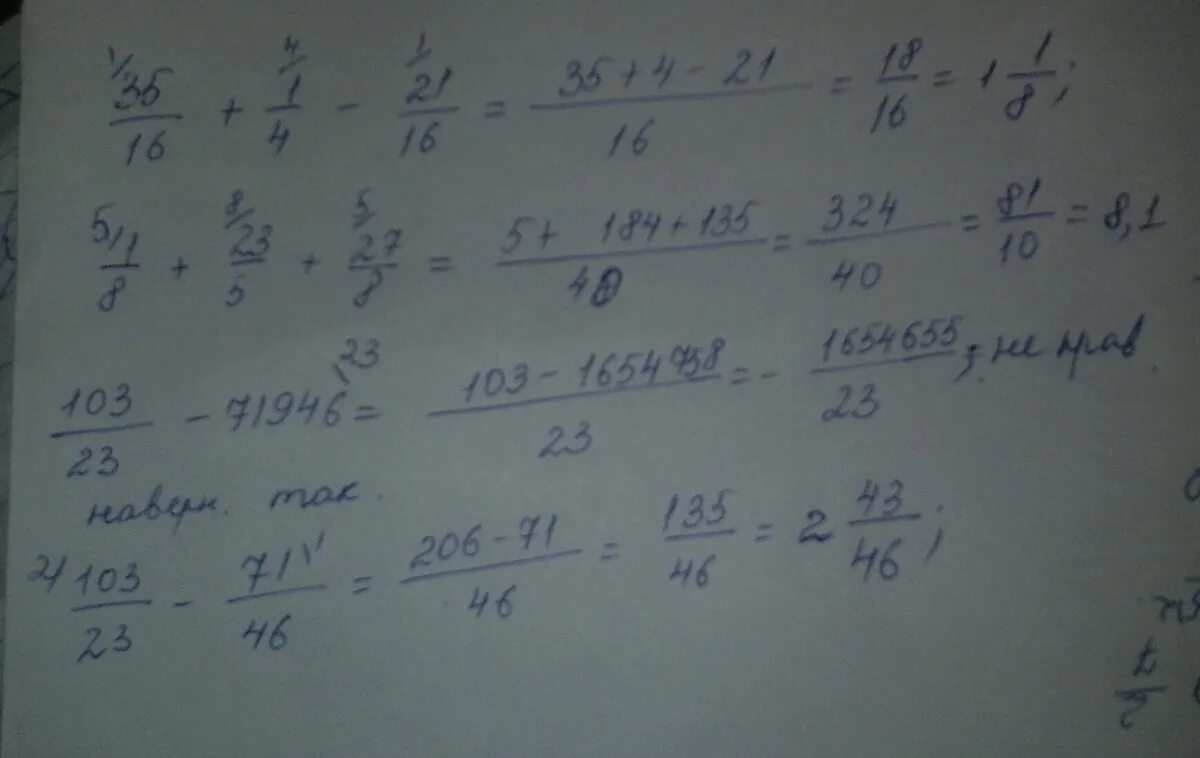 1/ 35/16 + 4/ 1/4 - 1/ 21/16 = (35+4-21)/16 = 18/16 = 1 1/8;
5/ 1/8 + 8/ 23/5 + 5/ 27/8 = (5+ 184+135)/40 = 324/40 = 81/10 = 8,1
103/23 - 71946 \23 = (103-1654758)/23 = - 1654655/23; не прав.
наверн. так.
2/ 103/23 - 71 \1/46 = (206-71)/46 = 135/46 = 2 43/46;